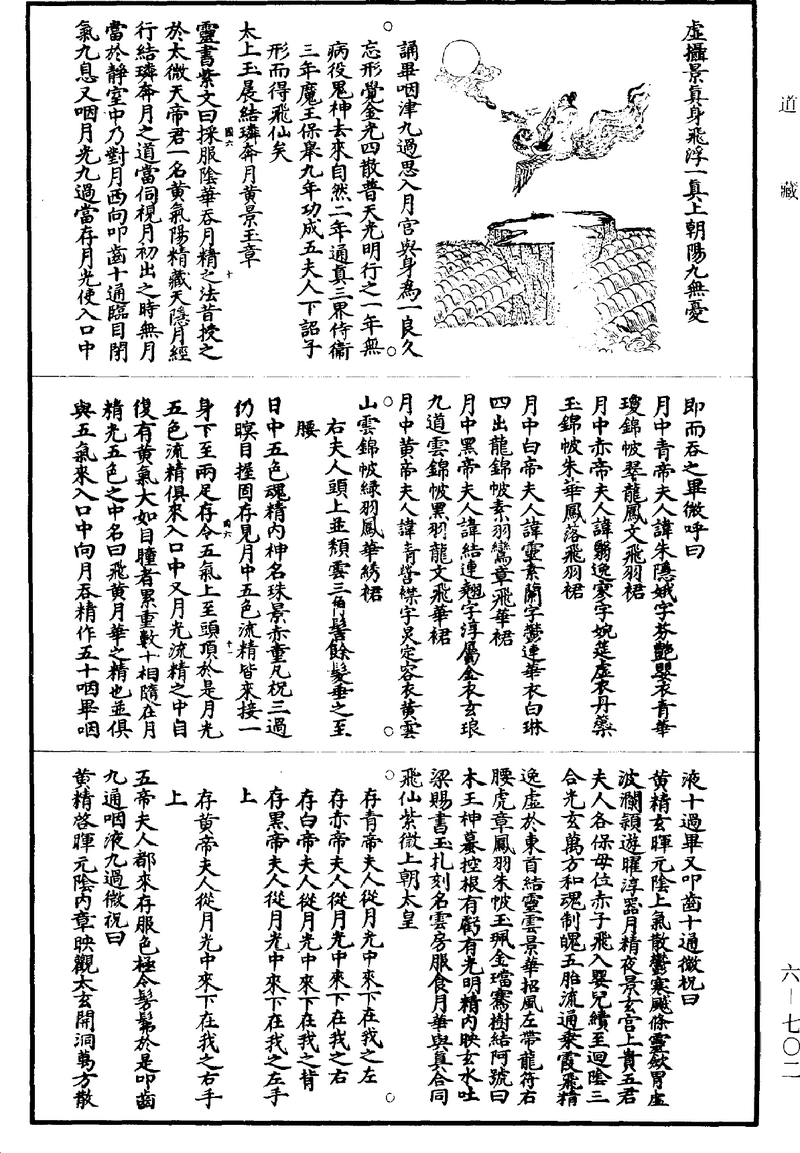 道藏
虛攝景真身飛浮一真上朝陽九無憂
誦畢咽津九過思入月宮與身為一良久
忘形覺金光四散普天光明行之一年無
病役鬼神去來自然二年通真三界侍衞
三年魔王保舉九年功成五夫人下詔子
形而得飛仙矣
太上玉晨結璘奔月黃景玉章
靈書紫文曰採服陰華吞月精之法昔授之
於太微天帝君一名黃氣陽精藏天隱月經
行結璘奔月之道當伺視月初出之時無月
當於靜室中乃對月西向叩齒十通臨目閉
氣九息又咽月光九過當存月光使入口中
即而吞之畢微呼曰
月中青帝夫人諱朱隱娥字芬艷嬰衣青華
瓊錦帔翠龍鳳文飛羽裙
月中赤帝夫人諱翳逸寥字婉筵虛衣丹蘂
玉錦帔朱華鳳落飛羽裙
月中白帝夫人諱靈素蘭字鬱連華衣白琳
四出龍錦帔素羽鸞章飛華裙
月中黑帝夫人諱結連翹字淳屬金衣玄琅
九道雲錦帔黑羽龍文飛華裙
月中黃帝夫人諱青營縹字炅定容衣黃雲
山雲錦帔綠羽鳳華綉裙
右夫人頭上並頹雲三角髻餘髮垂之至
腰
日中五色魂精内神名珠景赤童凡祝三過
仍暝目握固存見月中五色流精皆來接一
身下至兩足存令五氣上至頭頂於是月光
五色流精俱來入口中又月光流精之中自
復有黃氣大如目瞳者累重數十相隨在月
精光五色之中名曰飛黃月華之精也並俱
與五氣來入口中向月吞精作五十咽畢咽
液十過畢又叩齒十通微祝曰
黃精玄暉元陰上氣散鬱寒飈條靈斂胃虛
波瀾穎遊曜淳器月精夜景玄宮上貴五君
夫人各保母位赤子飛入嬰兒續至迴陰三
合光玄萬方和魂制魄五胎流通乘霞飛精
逸虛於東首結靈雲景華招風左帶龍符右
腰虎章鳳羽朱帔玉珮金璫騫樹結阿號曰
木王神蟇控根有虧有光明精内映玄水吐
梁賜書玉札刻名雲房服食月華與真合同
飛仙紫微上朝太皇
存青帝夫人從月光中來下在我之左
存赤帝夫人從月光中來下在我之右
存白帝夫人從月光中來下在我之背
存黑帝夫人從月光中來下在我之左手
上
存黃帝夫人從月光中來下在我之右手
上
五帝夫人都來存服色極令髣髴於是叩齒
九通咽液九過微祝曰
黃精啓暉元陰内章映觀太玄開洞萬方散
六－七〇二